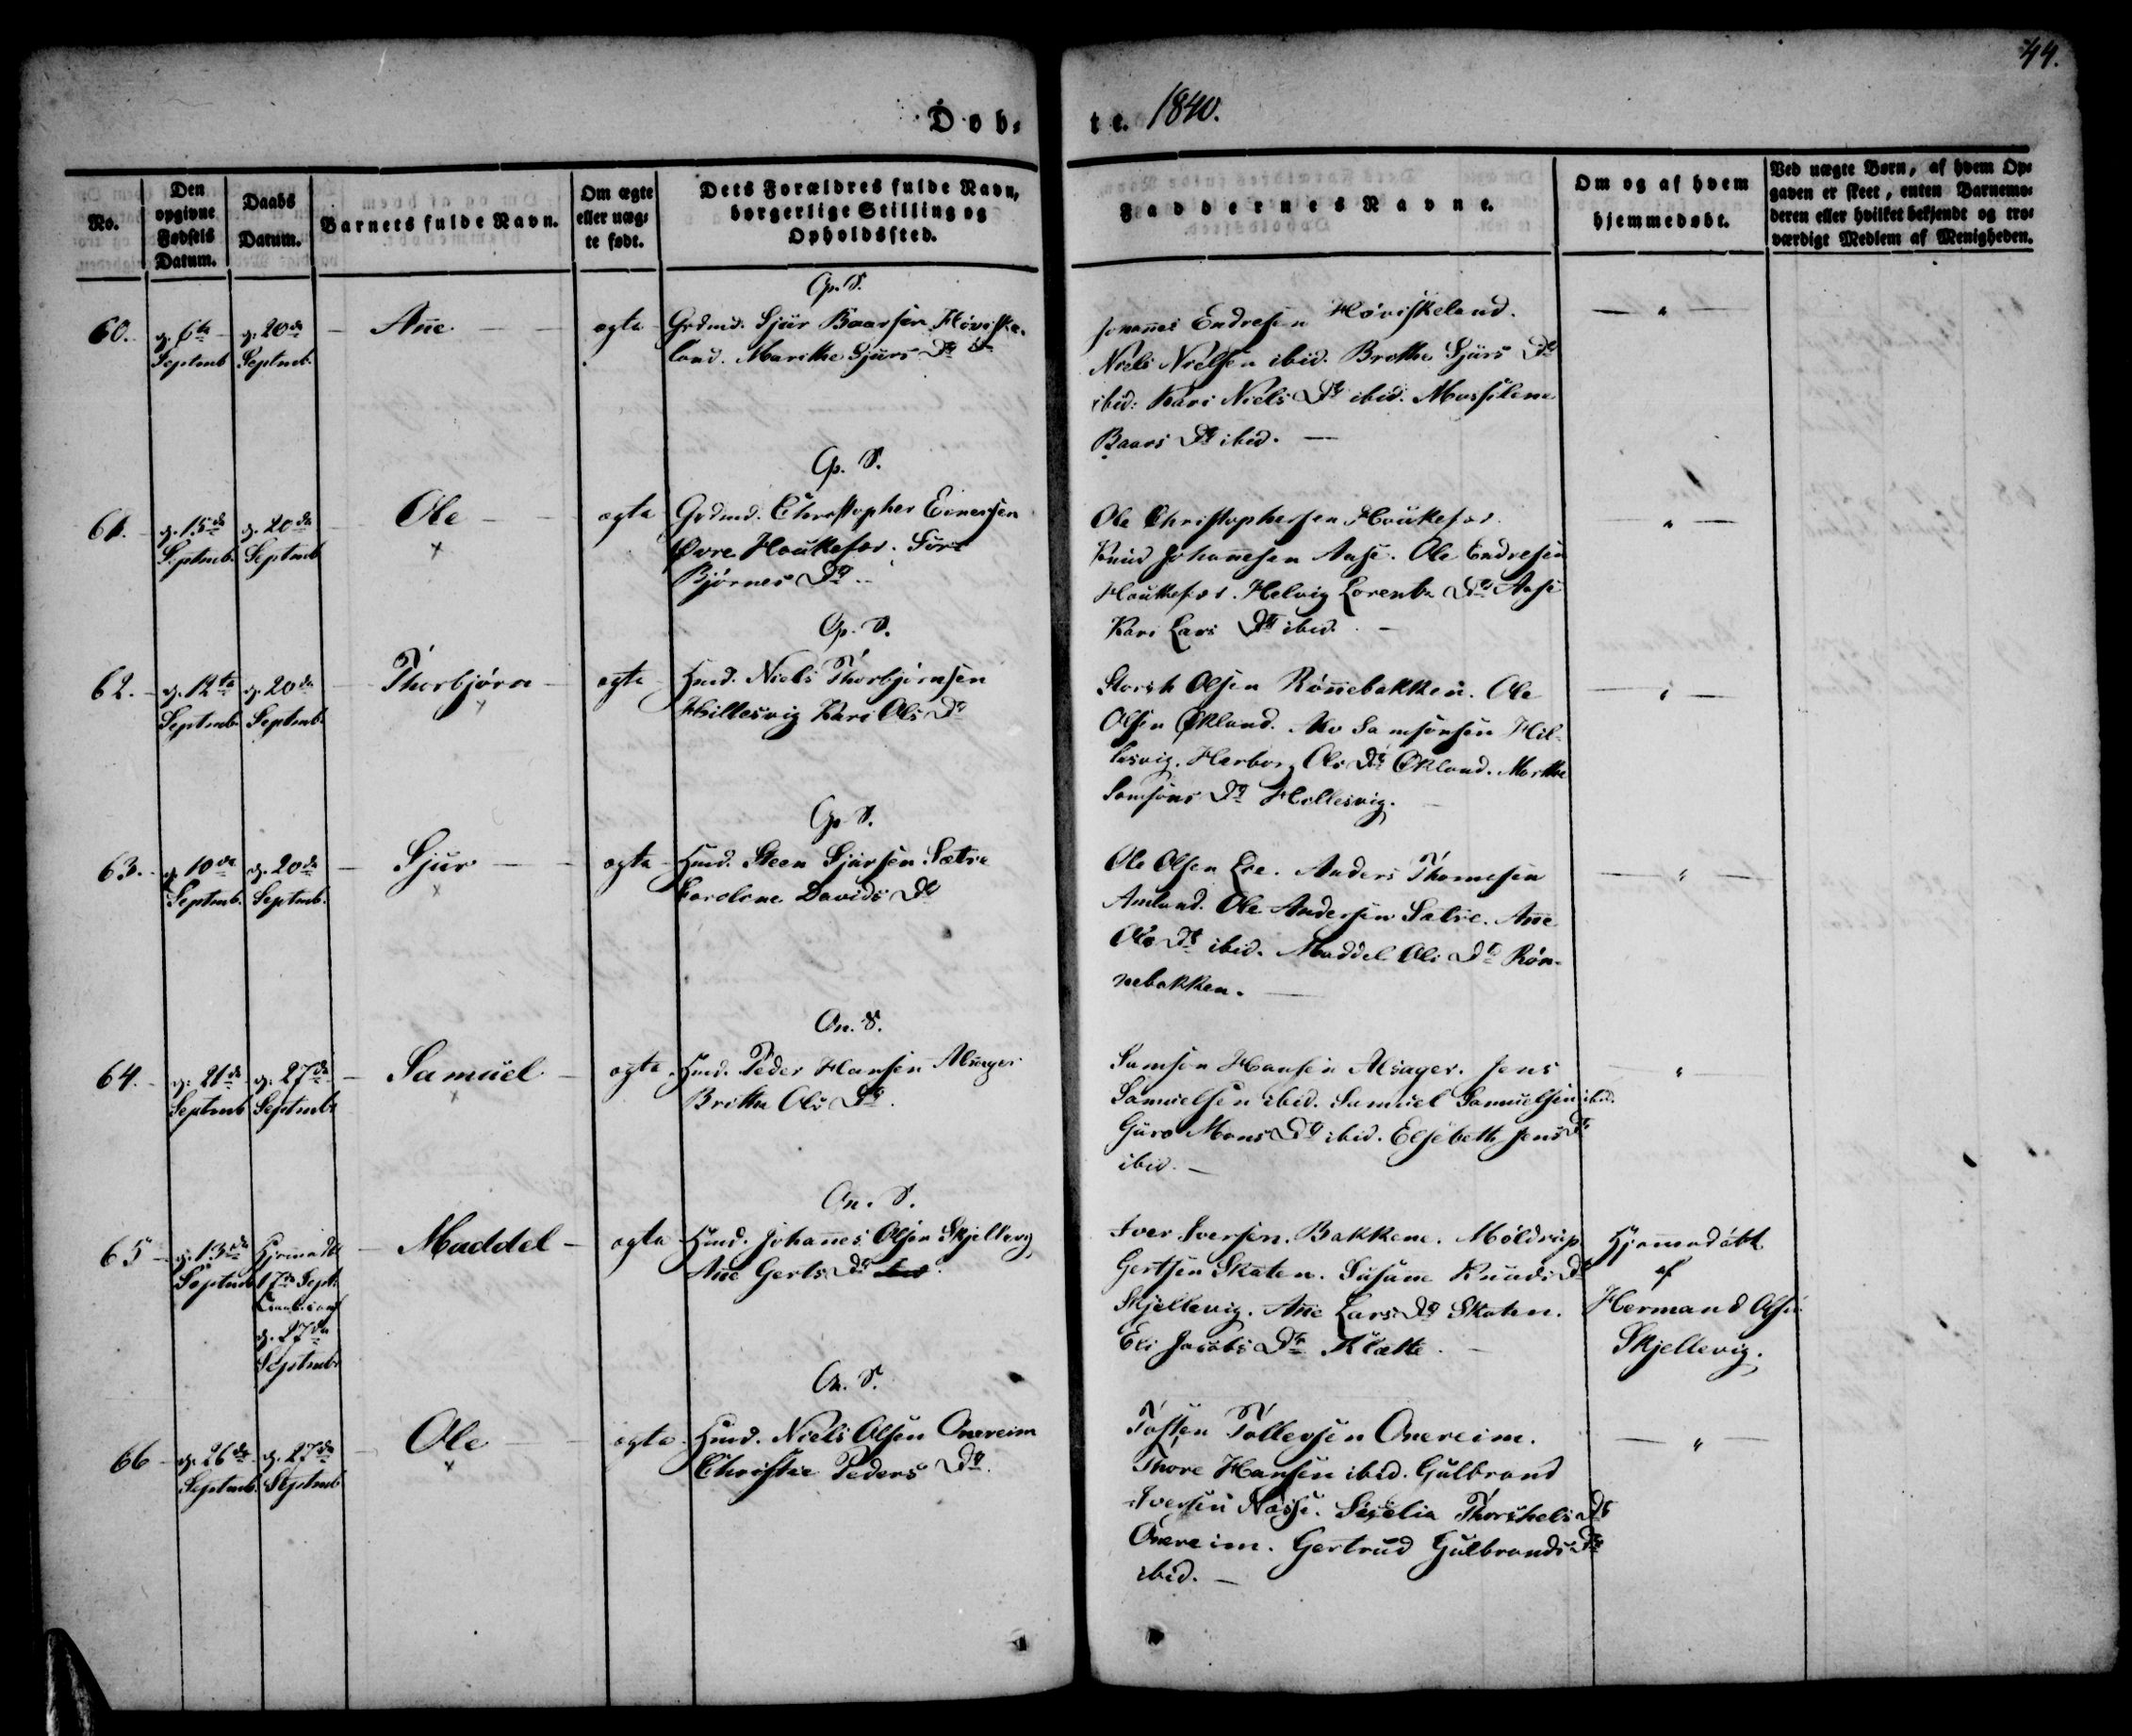 44.
Døb-
te. 1840.
No.
Den opgivne Fødsels Datum.
Daabs Datum.
Barnets fulde Navn.
Om ægte eller uægte født.
Dets Forældres fulde Navn, borgerlige Stilling og Opholdssted.
Faddernes Navne.
Om og af hvem hjemmedøbt.
Ved uægte Børn, af hvem Opgaven er skeet, enten Barnemoderen eller hvilket bekjendt og troværdigt Medlem af Menigheden.
60. d. 6te Septemb d. 20de Septemb. Anne ægte
Gp. S.
Grdmd. Sjur Baarsen Hóviske-
land. Marithe Sjurs Dr
Johannes Endresen Hóviskeland.
Niels Nielsen ibid. Brithe Sjurs Dr
ibid: Kari Niels Dr ibid.
Baars Dr ibid. —
61. d. 15de Septemb. d. 20de Septemb Ole ægte
Gp. S.
Grdmd. Christopher Eenersen
Øvre Houkefær. Siri
Bjørnes Dr
Ole Christophersen Houkefær.
Knud Johannesen Aase. Ole Endresen
Houkefær. Helvig Lorentz Dr Aase
Kari Lars Dr ibid. —
62. d. 12te Septemb d. 20de Septemb. Thorbjørn ægte
Gp. S.
Hmd. Niels Thorbjørnsen
Hillesvig Kari Ols Dr
Olsen Rónnebakken. Ole
Olsen Økland. Samsonsen Hil-
lesvig. Herbor Ols Dr Økland. Marthe
Samsons Dr Hillesvig.
63. d. 10de Septemb. d. 20de Septemb. Sjur ægte
Gp. S.
Hmd. Steen Sjursen Sætre
Karolene Davids Dr
Ole Olsen Ere. Anders Thomesen
Amland. Ole Andersen Sætre. Anne
Ols Dr ibid. Maddel Ols Dr Rón-
nebakken. —
64. d. 21de Septemb d. 27de Septemb Samuel ægte
On. S.
Hmd. Peder Hansen Alsager
Brithe Ols Dr.
Samson Hansen Alsager. Jens
Samuelsen ibid. Samuel Samuelsen ibid.
Guro Mons Dr ibid. Elsebeth Jens Dr
ibid. —
65 d. 13de Septemb Hjemmedbt 17de Sept. d. 27de Septemb Maddel ægte
On. S.
Hmd. Johannes Olsen Skjellevig
Anne Gerts Dr
Iver Iversen Bakkene. Móldrup
Gertsen Skaten. Susanne Knuds Dr
Skjellevig. Anne Lars Dr Skaten.
Eli Jacobs Dr Klætte. —
Hjemmedóbt
af
Hermand Olsen
Skjellevig.
66 d. 26de Septemb. d. 27de Septemb Ole ægte
On. S.
Hmd. Niels Olsen Onereim
Christie Peders Dr.
Tosten Tollevsen Onereim.
Thore Hansen ibid. Gulbrand
Iversen Næsse. Siselia Thorkels Dr
Onereim. Gertrud Gulbrands Dr
ibid. —